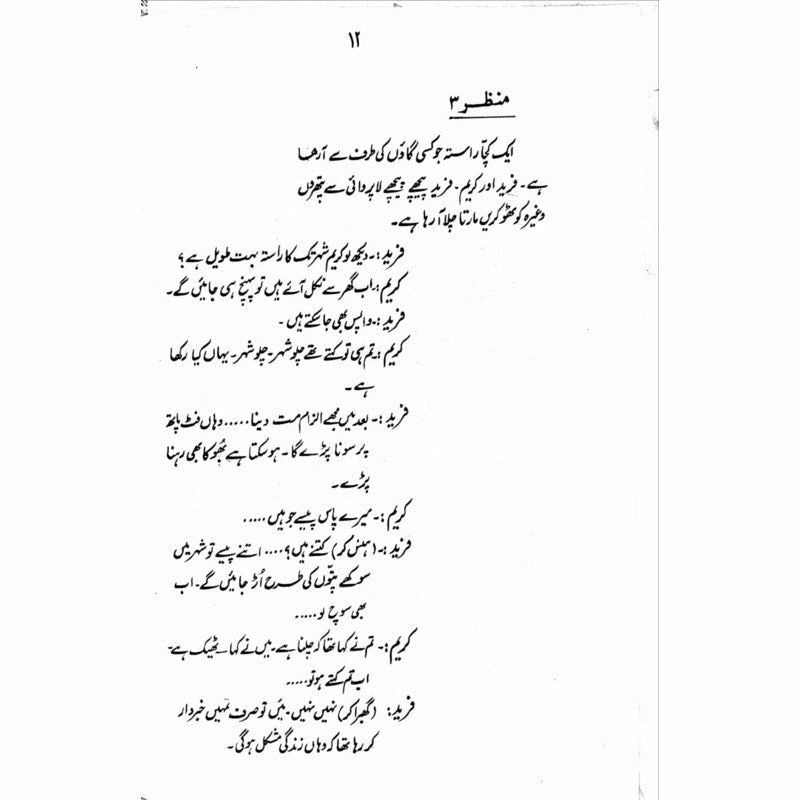 ۱۲
منظر ۳
ایک کچّا راستہ جو کسی گاؤں کی طرف سے آرھا
ہے۔ فرید اور کریم۔ فرید پیچھے پیچھے لاپروائی سے پتھروں
وغیرہ کو ٹھوکریں مارتا چلا آ رہا ہے۔
فرید:۔ دیکھ لو کریم شہر تک کا راستہ بہت طویل ہے؟
کریم:۔ اب گھر سے نکل آئے ہیں تو پہنچ ہی جائیں گے۔
فرید:۔ واپس بھی جا سکتے ہیں۔
کریم:۔ تم ہی تو کہتے تھے چلو شہر۔ چلو شہر۔ یہاں کیا رکھا
ہے۔
فرید:۔ بعد میں مجھے الزام مت دینا..... وہاں فٹ پاتھ
پر سونا پڑے گا۔ ہو سکتا ہے بھُوکا بھی رہنا
پڑے۔
کریم:۔ میرے پاس پیسے جو ہیں.....
فرید:۔ (ہنس کر) کتنے ہیں؟.... اتنے پیسے تو شہر میں
سوکھے پتّوں کی طرح اُڑ جائیں گے۔ اب
بھی سوچ لو.....
کریم:۔ تم نے کہا تھا کہ چلنا ہے۔ میں نے کہا۔ ٹھیک ہے۔
اب تم کہتے ہو تو.....
فرید: (گھبرا کر) نہیں نہیں۔ میں تو صرف تمہیں خبردار
کر رہا تھا کہ وہاں زندگی مشکل ہوگی۔